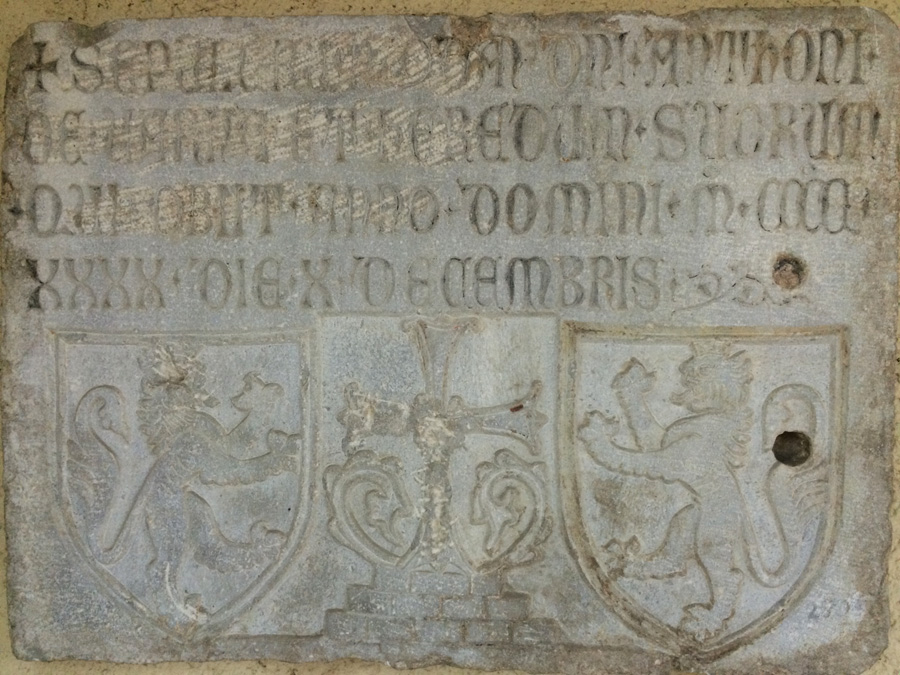 + SEPULTURA DNI · ANTHONI ·
DE ET HEREDUM · SUORUM
QUI OBIIT · ANNO · DOMINI · M · CCCC ·
XXXX · DIE · X · DECEMBRIS